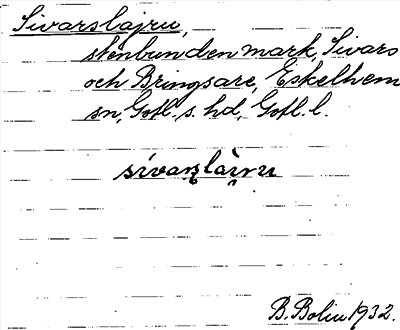 Sivarslajru,
stenbunden mark, Sivars
och Bringsare, Eskelhem
sn, Gotl. s. hd, Gotl. l.
sívaʂlài̯ru
B. Bolin 1932.